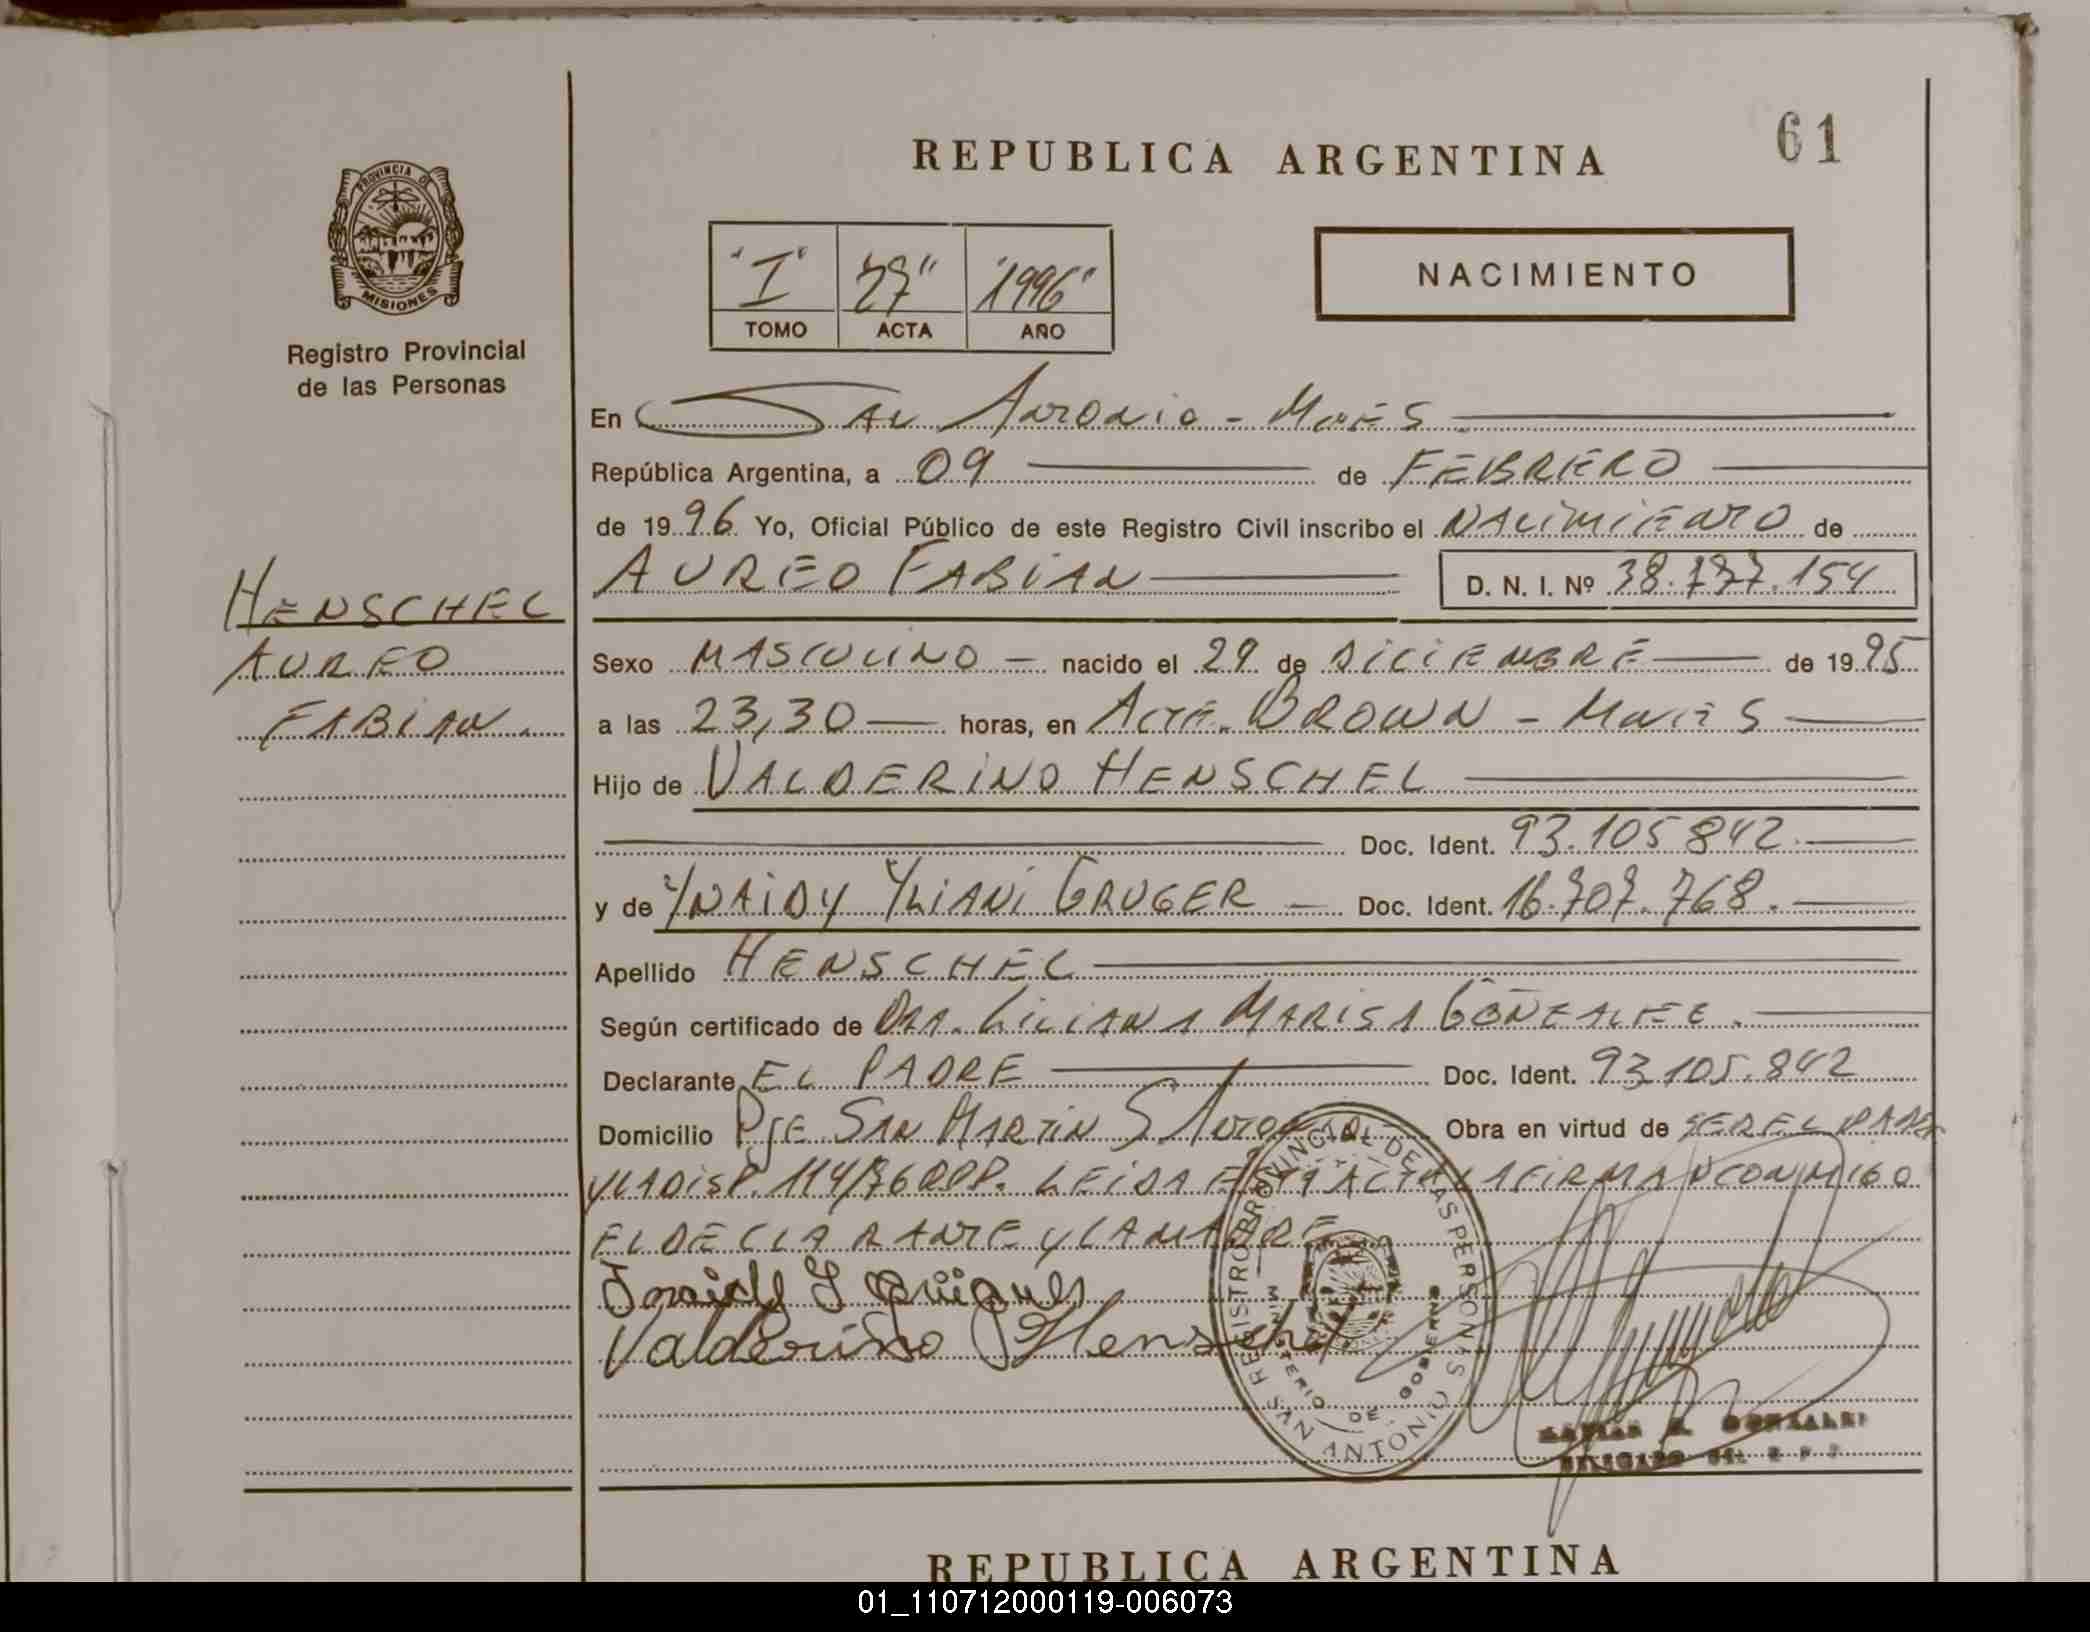 61
REPUBLICA ARGENTINA
PROVINCIA DE
MISIONES
Registro Provincial
de las Personas
"I" "27" "1996"
TOMO ACTA AÑO
NACIMIENTO
En SAN ANTONIO - Mnes
República Argentina, a 09 de FEBRERO
de 1996 Yo, Oficial Público de este Registro Civil inscribo el NACIMIENTO de
AUREO FABIAN D. N. I. Nº 38.137.154
HENSCHEL
AUREO
FABIAN.
Sexo MASCULINO - nacido el 29 de DICIEMBRE de 1995
a las 23,30 horas, en Alte. BROWN - Mnes
Hijo de VALDERINO HENSCHEL
Doc. Ident. 93.105.842.
y de YNAIDY YLIANI GRUGER - Doc. Ident. 16.707.768.
Apellido HENSCHEL
Según certificado de DRA. LILIANA MARISA
Declarante EL PADRE Doc. Ident. 93.105.842
Domicilio Pje SAN MARTIN S Obra en virtud de SER EL PADRE
Y LA DISP. 114/76 LEIDA EL ACTA LA FIRMAN CONMIGO
EL DECLARANTE y LA MADRE
Valderino Henschel
REGISTRO PROVINCIAL DE LAS PERSONAS
MINISTERIO DE GOBIERNO
SAN ANTONIO
GONZALEZ
DELEGADO DEL R P P
REPUBLICA ARGENTINA
01_110712000119-006073